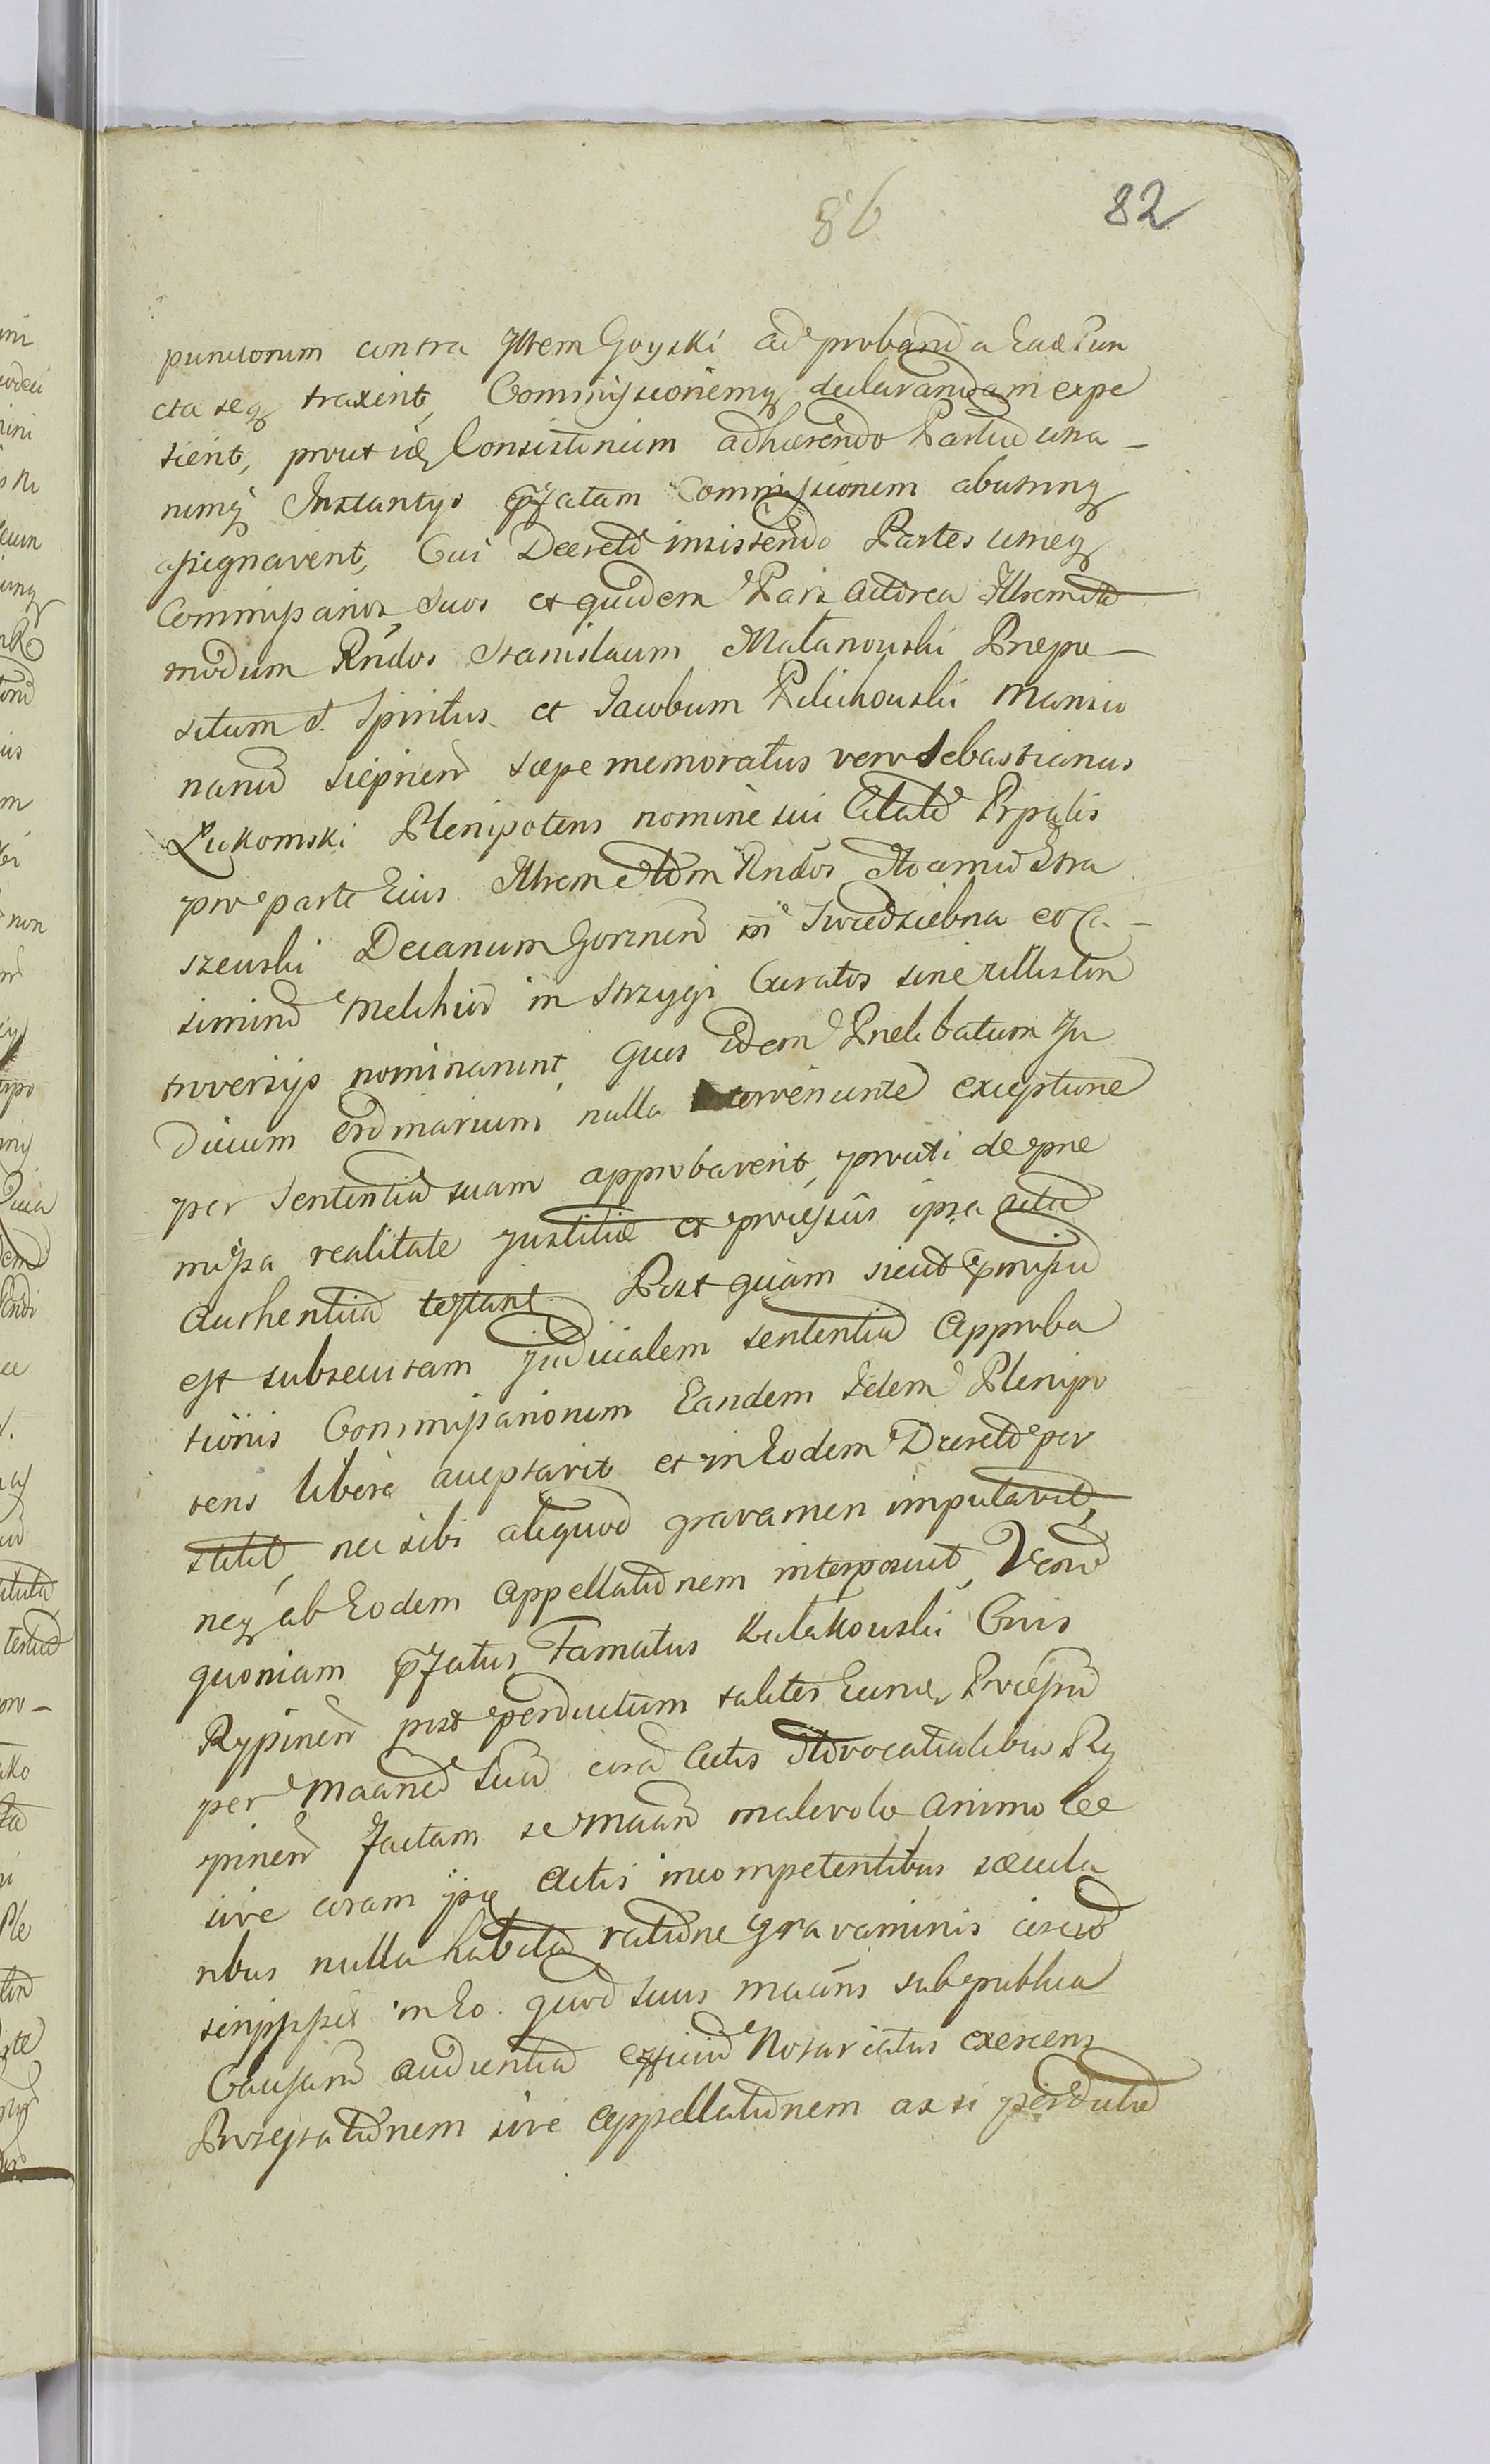 86 82
punctorum contra Illrem Goyski ad probandã Ead Pun
cta seq traxerit, Commissionemq declarandam expe
tierit, prout id Consistorium adhærendo Partiũ utra-
rumq Instantijs p̃fatam Commissionem ab utrinq
assignaverit, Cui Decreto insistendo Partes utreq
Commissarios suos et quidem Pars Actorea Illrem Adm
modum Rndos Stanislaum Małanowski Præpo-
situm S. Spiritus et Jacobum Pilichowski Mansio
nariũ Sieprien sæpe memoratus vero Sebastianus
Łukomski Plenipotens nomine sui Citati Prpalis
pro parte Eius Illrem Adm Rndos Adamũ Stra
szewski Decanum Gorznen in Swiedziebna et Ca-
simirũ Melchior in Strzygi Curatos sine ullis Con
troversijs nominarunt, quos idem Prælibatum Ju
dicium ordinarium nulla interveniente exceptione
per Sententiã suam approbaverit, prouti de præ
missa realitate Justitiæ et processûs ipsa acta
authentica testant. Post quam sicut p̃missũ
est subsecutam judicialem sententiã Approba
tionis Commissariorum Eandem Idem Plenipo
tens libere acceptavit et in Eodem Decreto per
stitit, nec sibi aliquod gravamen imputavit,
neq ab Eodem Appellationem interposuit, Verũ
quoniam p̃fatus Famatus Kulakowski Civis
Rypinen post perductum taliter Eund Processũ
per Maand Suũ corã Actis Advocatialibus Ry
pinen factam se Maand malevolo animo
sive coram ipse Actis incompetentibus sæcula
ribus nulla habita ratione gravaminis
in Eo. quod suus Maans sub publica
Causarũ audientia officiũ Notariatus exercens
Protestationem sive Appellationem